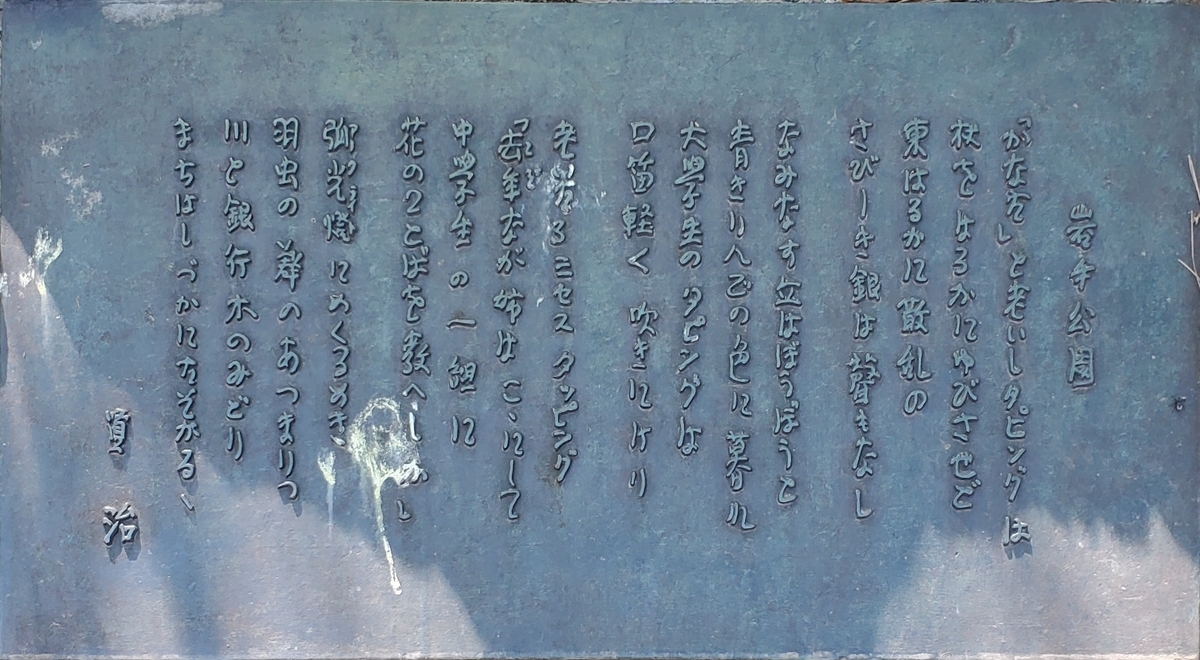 岩手公園
「かなた」と老いしタピングは
杖をはるかにゆびさせど
東はるかに散乱の
さびしき銀は聲もなし
なみなす丘はぼうぼうと
青きりんごの色に暮れ
大學生のタピングは
口笛軽く吹きにけり
老いたるミセスタッピング
「去年なが姉はこゝにして
中學生の一組に
花のことばを教へしか」
弧光燈にめくるめき
羽虫の群のあつまりつ
川と銀行木のみどり
まちはしづかにたそがるゝ
賢治